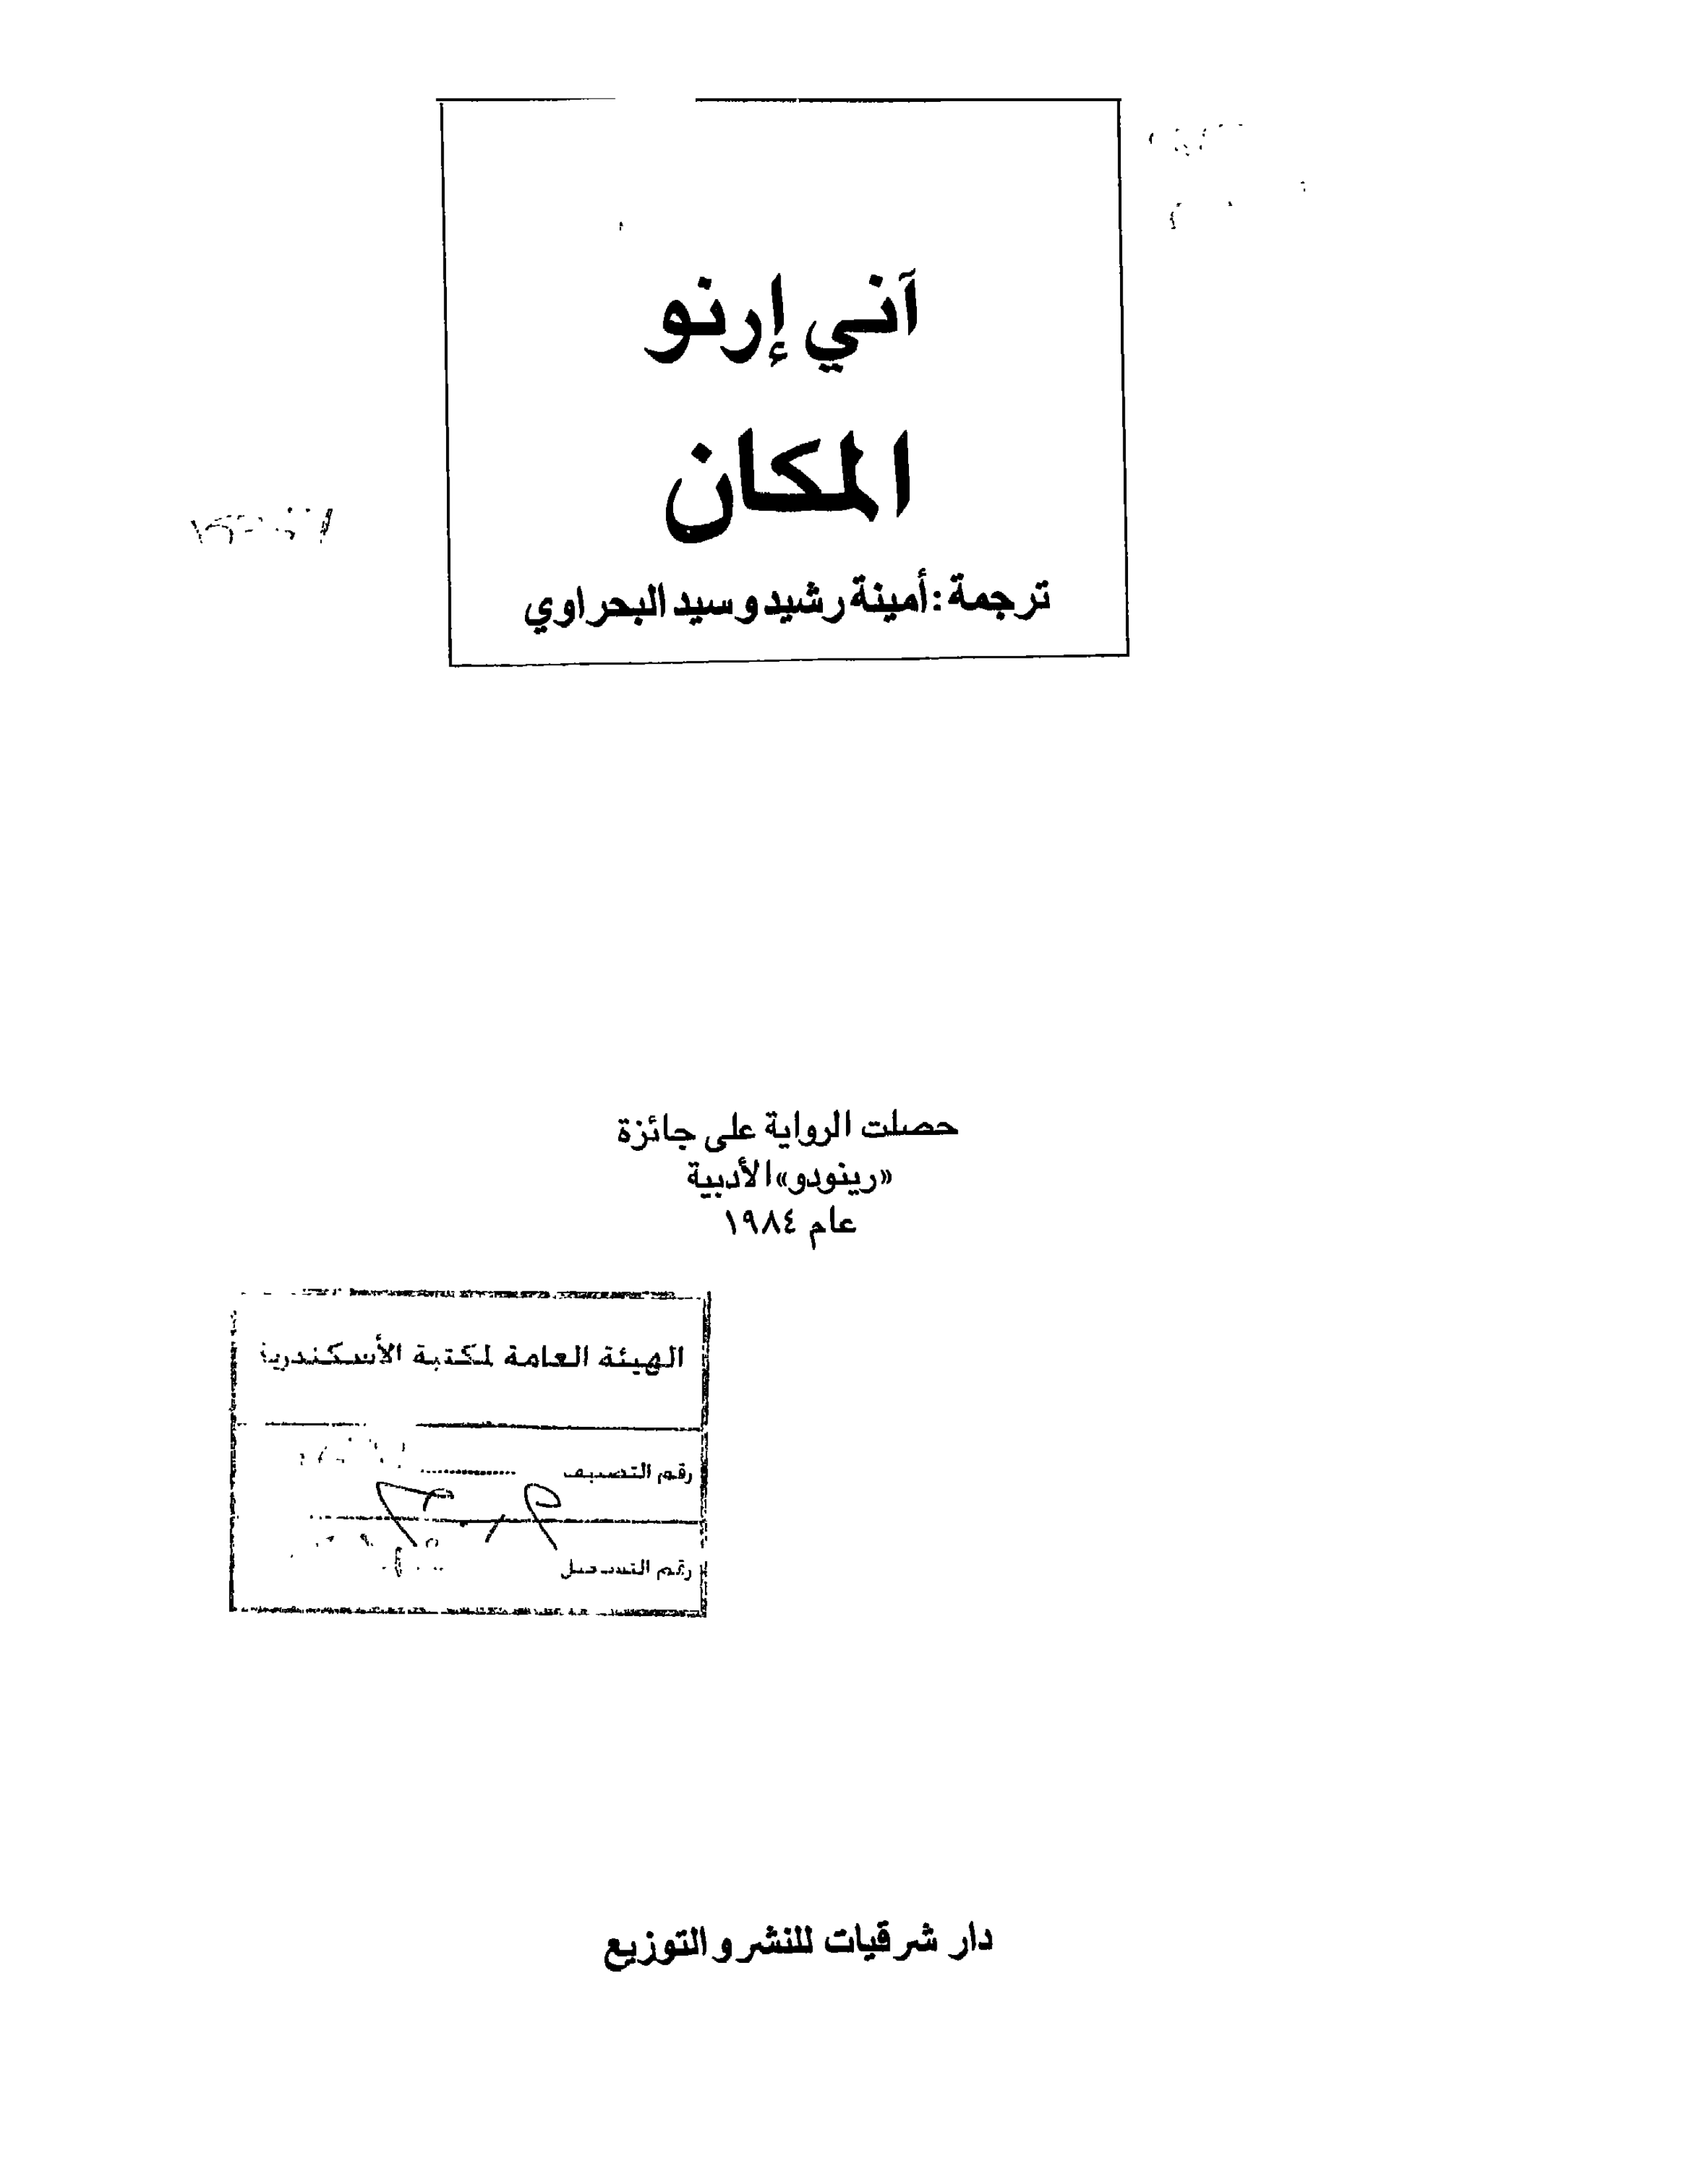 آني إرنو
المكان
ترجمة: أمينة رشيد و سيد البحراوي
حصلت الرواية على جائزة
«رينودو» الأدبية
عام ١٩٨٤
الهيئة العامة لمكتبة الأسكندرية
رقم التصنيف
رقم التسجيل
دار شرقيات للنشر والتوزيع